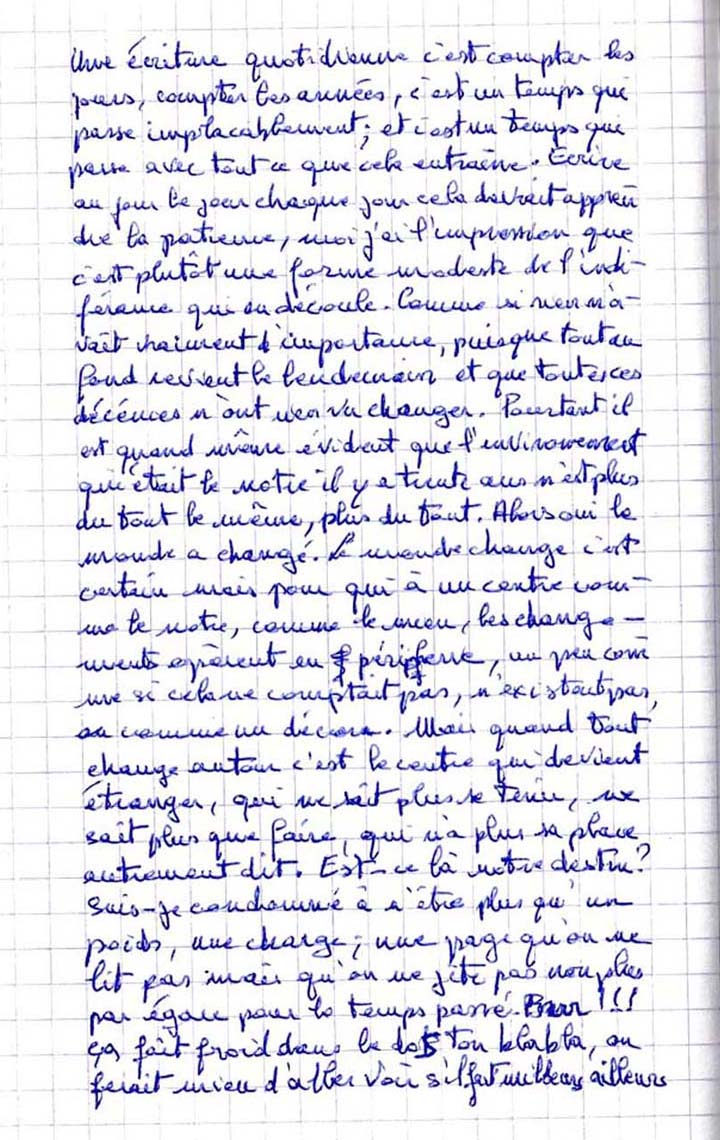 Une écriture quotidienne c'est compter les
jours, compter les années, c'est un temps qui
passe implacablement; et c'est un temps qui
passe avec tout ce que cela entraîne. Ecrire
au jour le jour chaque jour cela devrait appren
dre la patience, moi j'ai l'impression que
c'est plutôt une forme modeste de l'indi-
férence qui en découle. Comme si rien n'a-
vait vraiment d'importance, puisque tout au
fond revient le lendemain et que toutes ces
décénies n'ont rien vu changer. Pourtant il
est quand même évident que l'environement
qui était le notre il y a trente ans n'est plus
du tout le même, plus du tout. Alors oui le
monde a changé. Le monde change c'est
certain mais pour qui à un centre com-
me le notre, comme le mien, les change-
ments opèrent en périférie, un peu com
me si cela ne comptait pas, n'existait pas,
ou comme un décors. Mais quand tout
change autour c'est le centre qui devient
étranger, qui ne sait plus se tenir, ne
sait plus que faire, qui n'a plus sa place
autrement dit. Est-ce là notre destin?
Suis-je condamné à n'être plus qu'un
poids, une charge; une page qu'on ne
lit pas mais qu'on ne jète pas non plus
par égard pour le temps passé. Brrr!!!
ça fait froid dans le dos ton blabla, on
ferait mieu d'aller voir s'il fait meilleur ailleurs